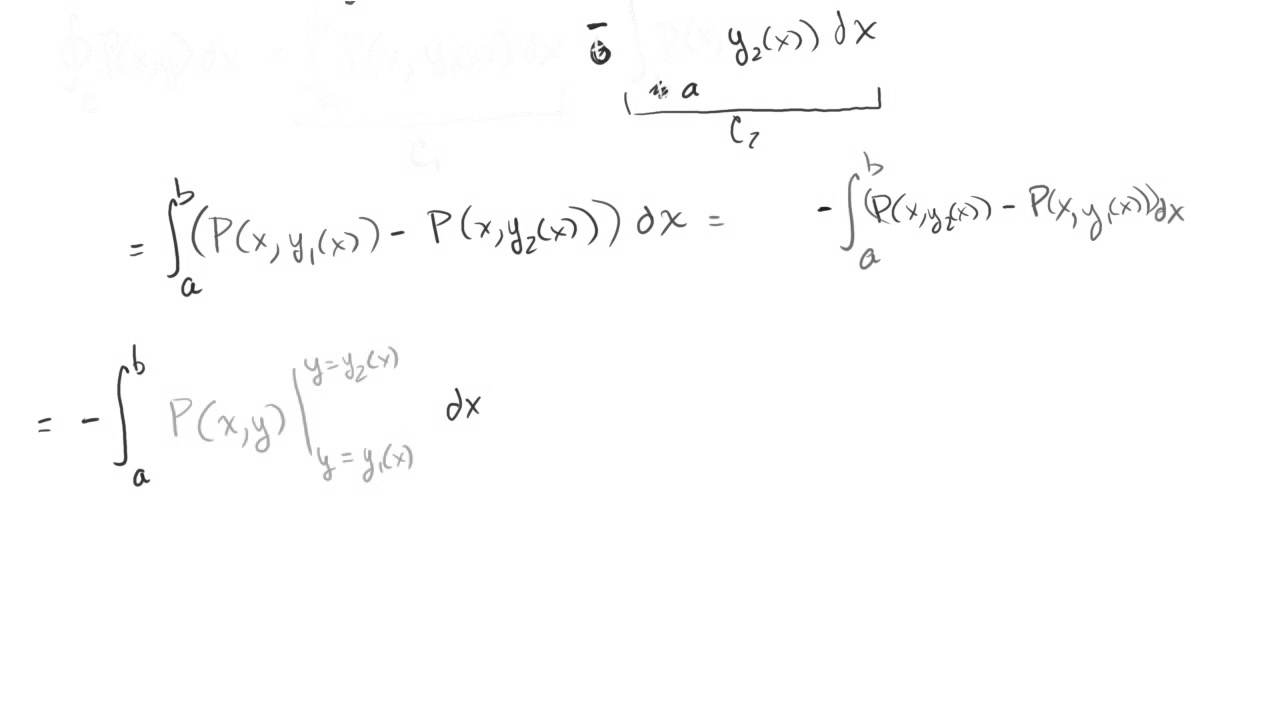 ∮_C P(x,y) dx = ∫ P(x, y₁(x)) dx − ∫ P(x, y₂(x)) dx
a
C₁ C₂
= ∫_a^b (P(x, y₁(x)) − P(x, y₂(x))) dx = −∫_a^b (P(x, y₂(x)) − P(x, y₁(x))) dx
= −∫_a^b P(x,y) |_{y = y₁(x)}^{y = y₂(x)} dx